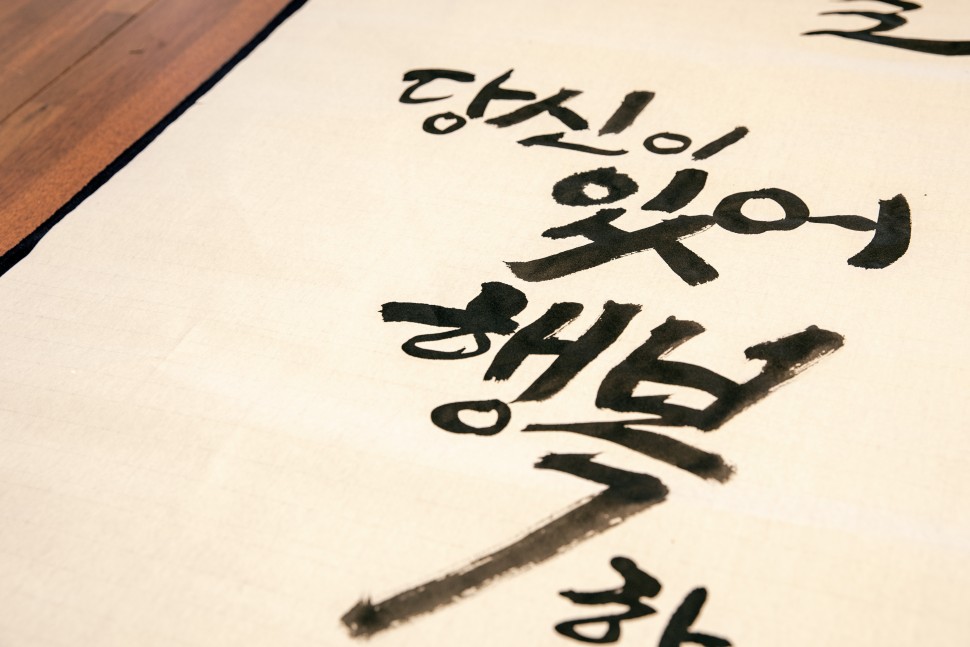 당신이
있어
행복